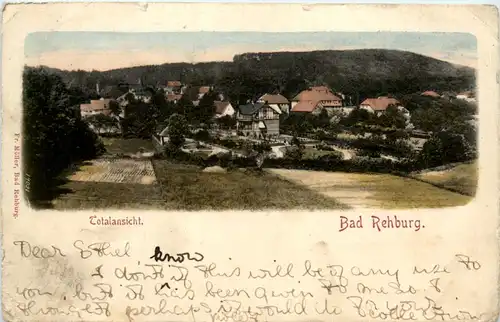 Fr. Möller, Bad Rehburg.
Totalansicht.
Bad Rehburg.
Dear Ethel know
I don't this will be of any use to
you, but it has been given to me so I
thought perhaps it would do to your
collection